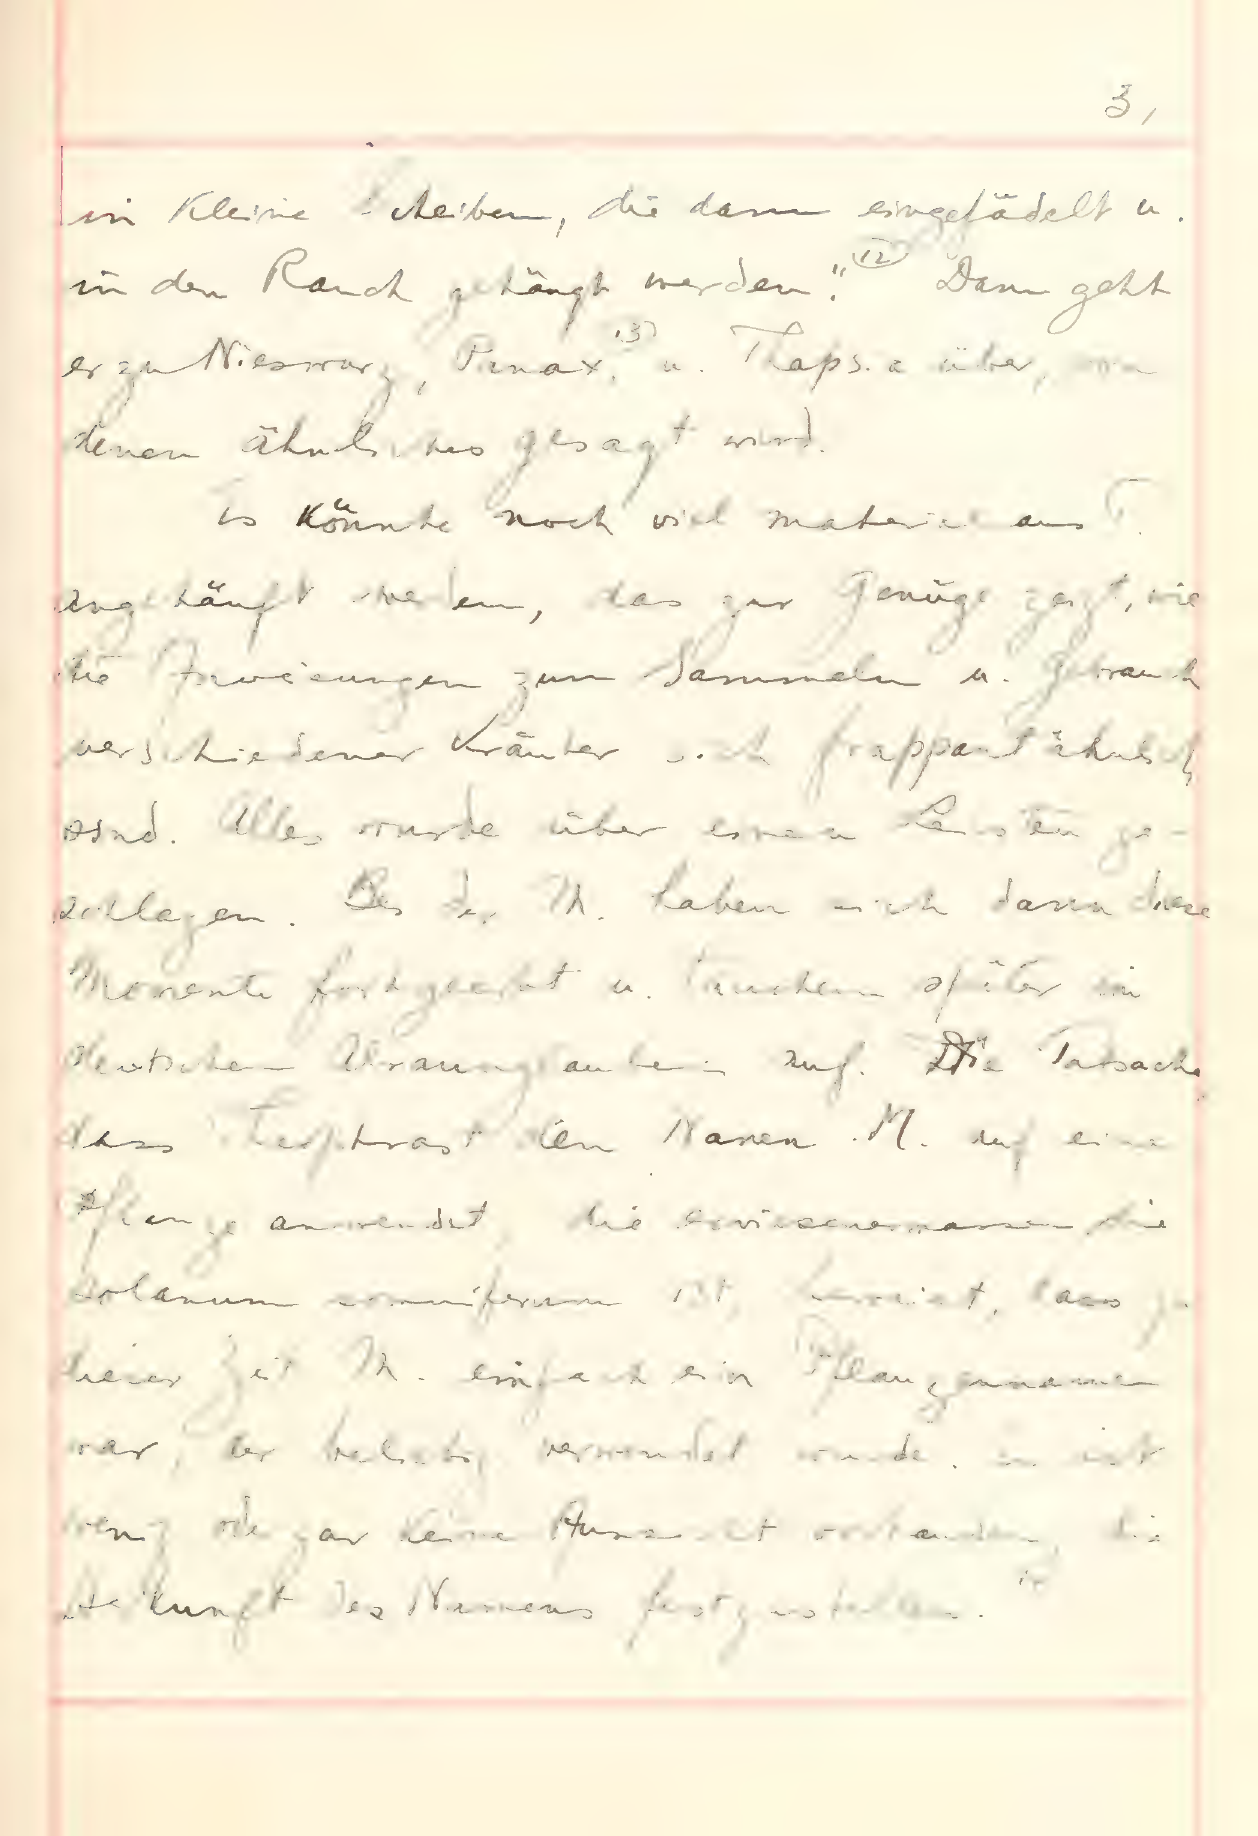 3,
in kleine Scheiben, die dann eingefädelt u.
in den Rauch gehängt werden." 12 Dann geht
er zu Nieswurz, Panax, 13 u. Thapsia über, von
denen ähnliches gesagt wird.
Es könnte noch viel material aus T.
angehäuft werden, das zur Genüge zeigt, wie
die Anweisungen zum Sammeln u. Gebrauch
verschiedener Kräuter sich frappant ähnlich
sind. Alles wurde über einen Leisten ge-
schlagen. Bei der M. haben sich dann diese
Momente fortgeerbt u. tauchen später im
deutschen Alraunglauben auf. Die Tatsache,
dass Teophrast den Namen M. auf eine
Pflanze anwendet, die erwiesenermassen die
solanum somniferum ist, beweist, dass zu
dieser Zeit M. einfach ein Pflanzenname
war, der beliebig verwendet wurde. Es ist
wenig oder gar keine Aussicht vorhanden, die
Herkunft des Namens festzustellen. 14